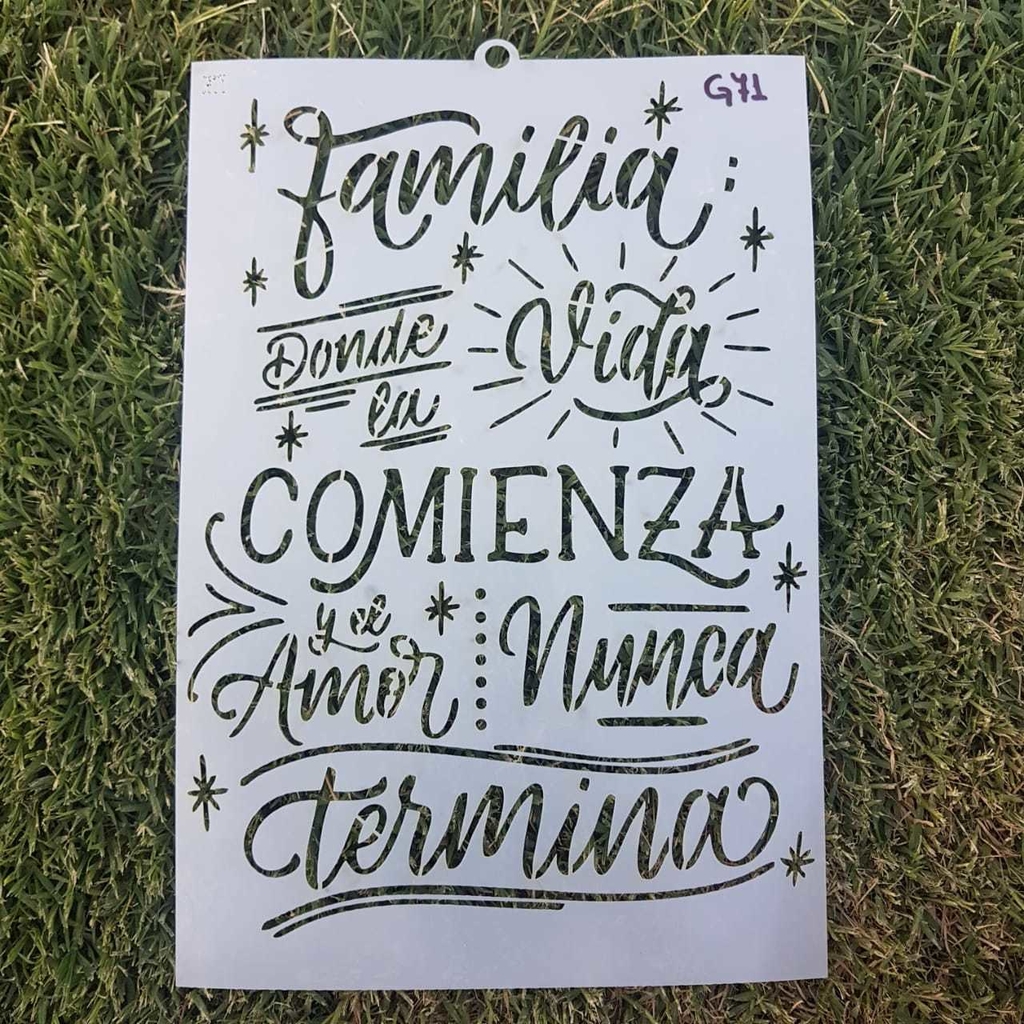 G71
Familia:
Donde la Vida
COMIENZA
y el Amor Nunca
termina